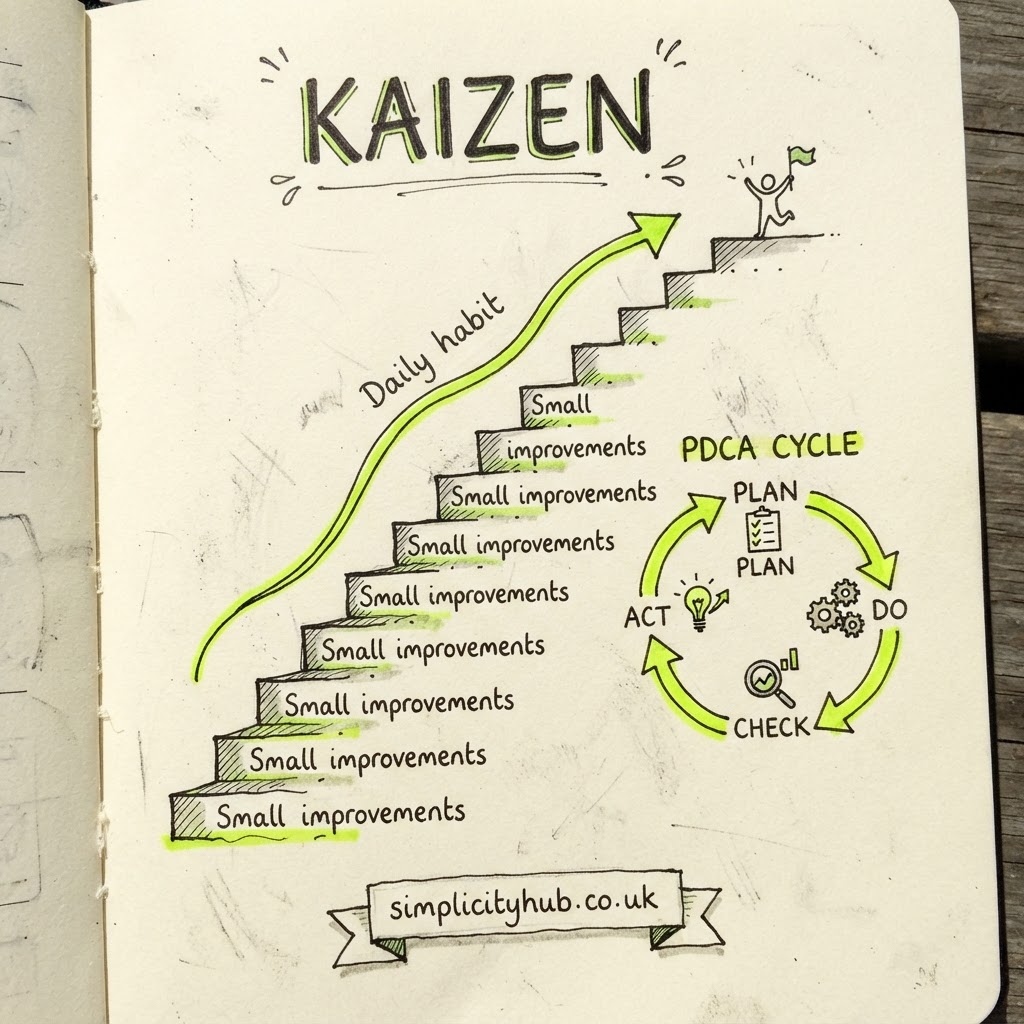 KAIZEN
Daily habit
Small
improvements
Small improvements
Small improvements
Small improvements
Small improvements
Small improvements
Small improvements
Small improvements
PDCA CYCLE
PLAN
PLAN
ACT
DO
CHECK
simplicityhub.co.uk